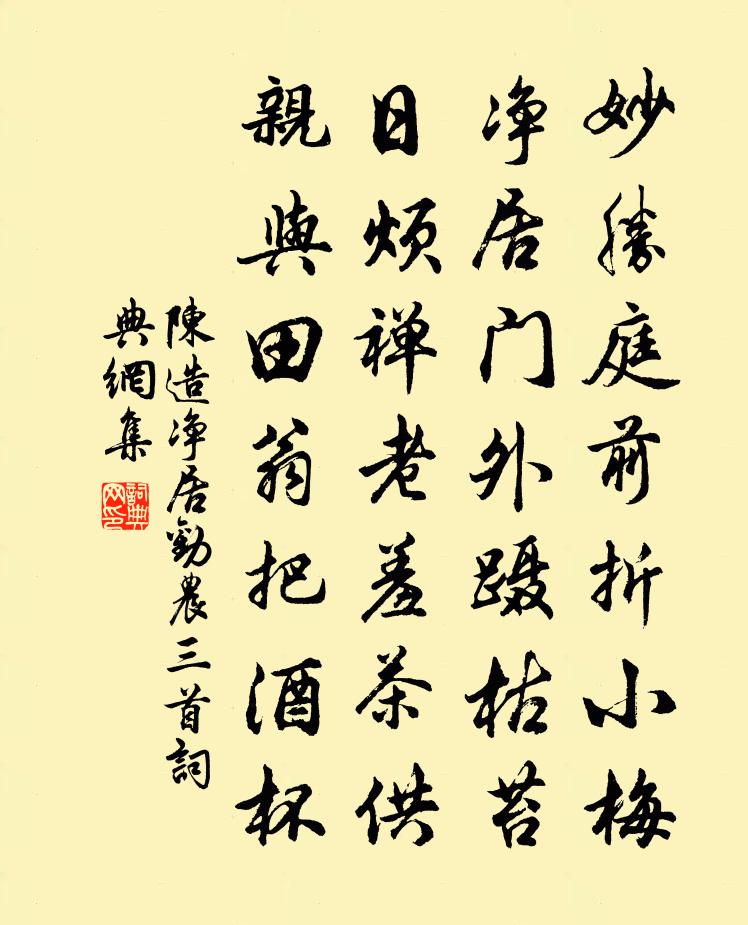 妙勝庭前折小梅
净居门外蹑枯苔
日烦禅老羞茶供
親與田翁把酒杯
陳造净居勸農三首詞
典網集
詞典网印